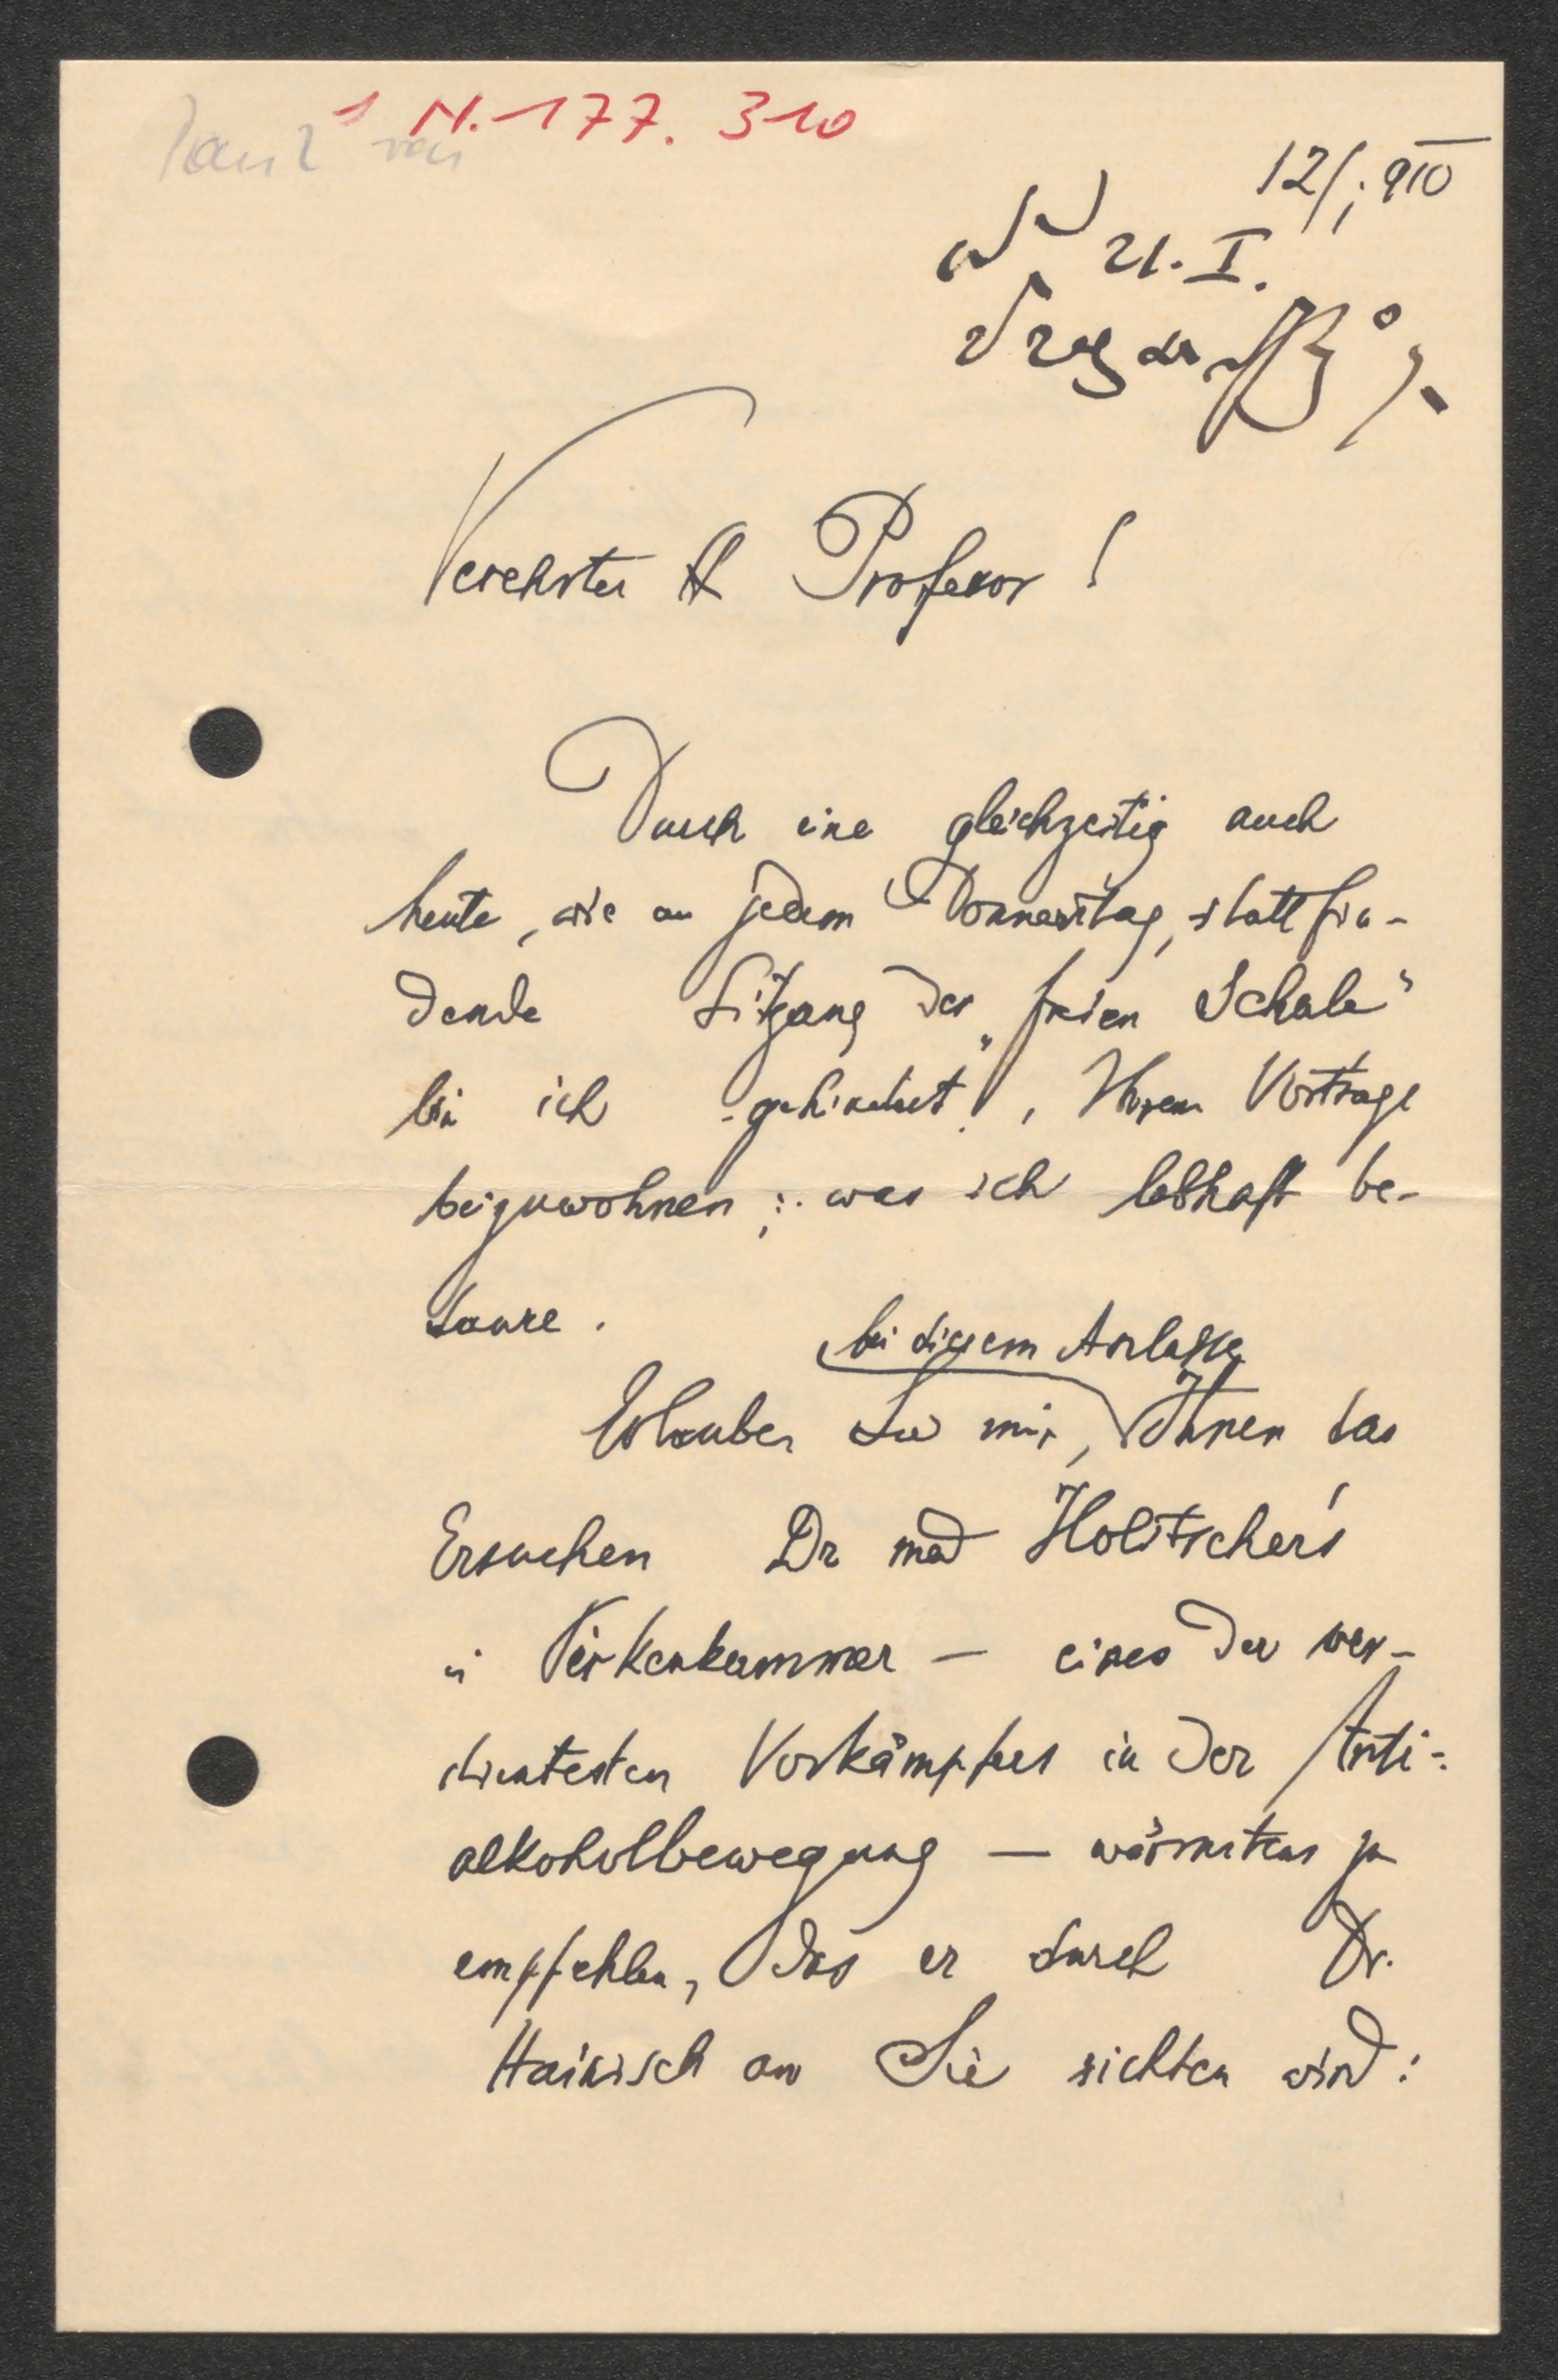 1 N. 177. 310
12/I 910
21. I.
Verehrter H Professor!
Durch eine gleichzeitig auch
heute, wie an jedem Donnerstag, stattfin-
dende Sitzung der „freien Schule"
bin ich gehindert, Ihrem Vortrage
beizuwohnen; was ich lebhaft be-
daure.
bei diesem Anlasse
Erlauben Sie mir, Ihnen das
Ersuchen Dr med Holitscher's
in Pirkenhammer — eines der ver-
dientesten Vorkämpfers in der Anti-
alkoholbewegung — wärmstens zu
empfehlen, das er durch Dr.
Hainisch an Sie richten wird: